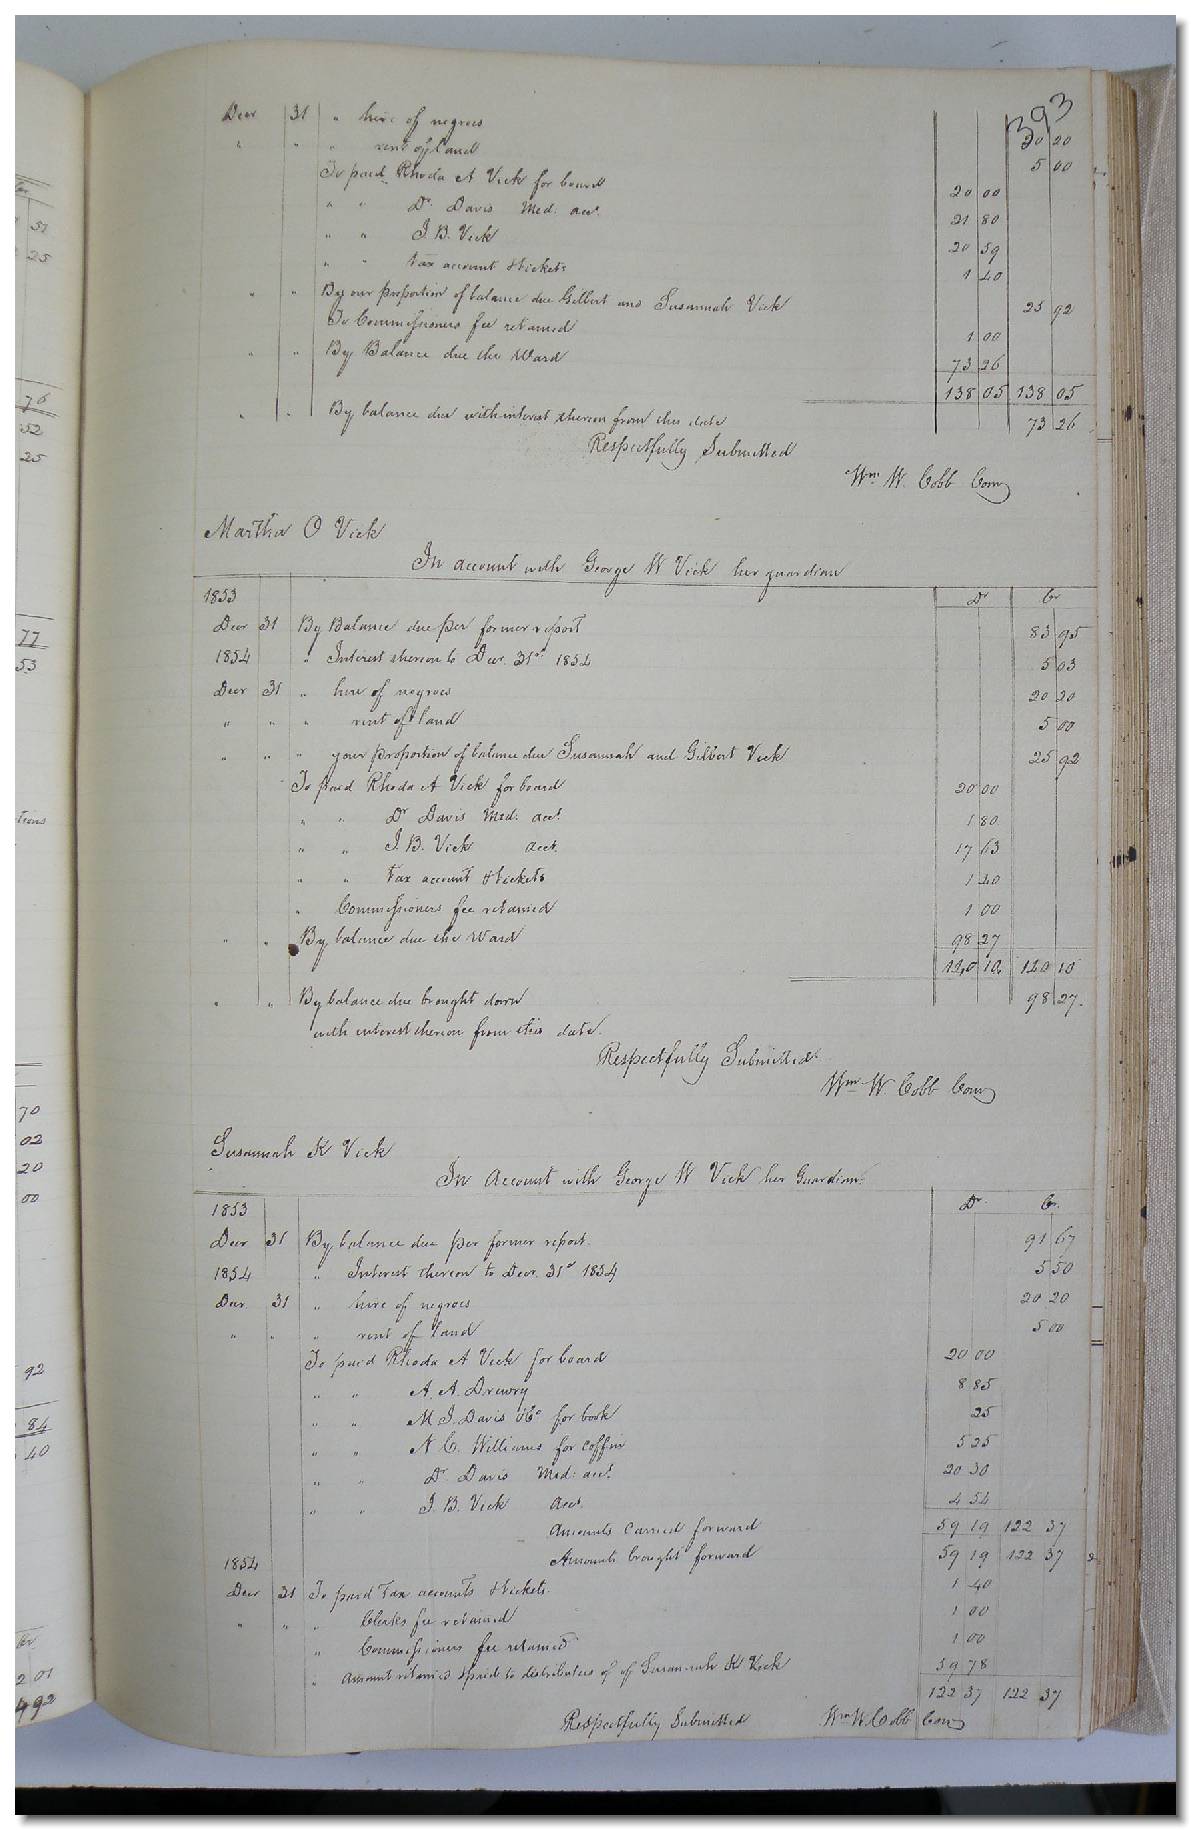 393
Decr 31 " hire of negroes 20 20
" " " rent of land 5 00
To paid Rhoda A Vick for board 20 00
" " Dr. Davis Med: acct. 21 80
" " J. B. Vick 20 59
" " Tax account & tickets 1 40
" " By our proportion of balance due Gilbert and Susannah Vick 25 92
To Commissioners fee retained 1 00
" " By Balance due the Ward 73 26
138 05 138 05
" " By balance due with interest thereon from this date 73 26
Respectfully Submitted
Wm. W. Cobb Comr
Martha O Vick
In account with George W Vick her guardian
1853 Dr Cr
Decr 31 By Balance due per former report 83 95
1854 " Interest thereon to Decr. 31st 1854 5 03
Decr 31 " hire of negroes 20 20
" " " rent of land 5 00
" " " your proportion of balance due Susannah and Gilbert Vick 25 92
To paid Rhoda A Vick for board 20 00
" " Dr Davis Med: acct. 1 80
" " J. B. Vick acct. 17 63
" " Tax account & tickets 1 40
" Commissioners fee retained 1 00
" " By balance due the Ward 98 27
140 10 140 10
" " By balance due brought down 98 27.
with interest thereon from this date.
Respectfully Submitted
Wm. W. Cobb Comr
Susannah K Vick
In Account with George W Vick her Guardian.
1853 Dr Cr.
Decr 31 By balance due per former report. 91 67
1854 " Interest thereon to Decr. 31st 1854 5 50
Decr. 31 " hire of negroes 20 20
" " " rent of land 5 00
To paid Rhoda A Vick for board 20 00
" " A. A. Drewry 8 85
" " M J. Davis & Co for book 25
" " N C. Williams for coffin 5 25
" " Dr. Davis Med: acct. 20 30
" " J. B. Vick Acct. 4 54
Amounts carried forward 59 19 122 37
1854 Amounts brought forward 59 19 122 37
Decr 31 To paid Tax accounts & tickets. 1 40
" " " Clerks fee retained 1 00
" Commissioners fee retained 1 00
" Amount retained & paid to distributees of Susannah K Vick 59 78
122 37 122 37
Respectfully Submitted Wm W. Cobb Comr